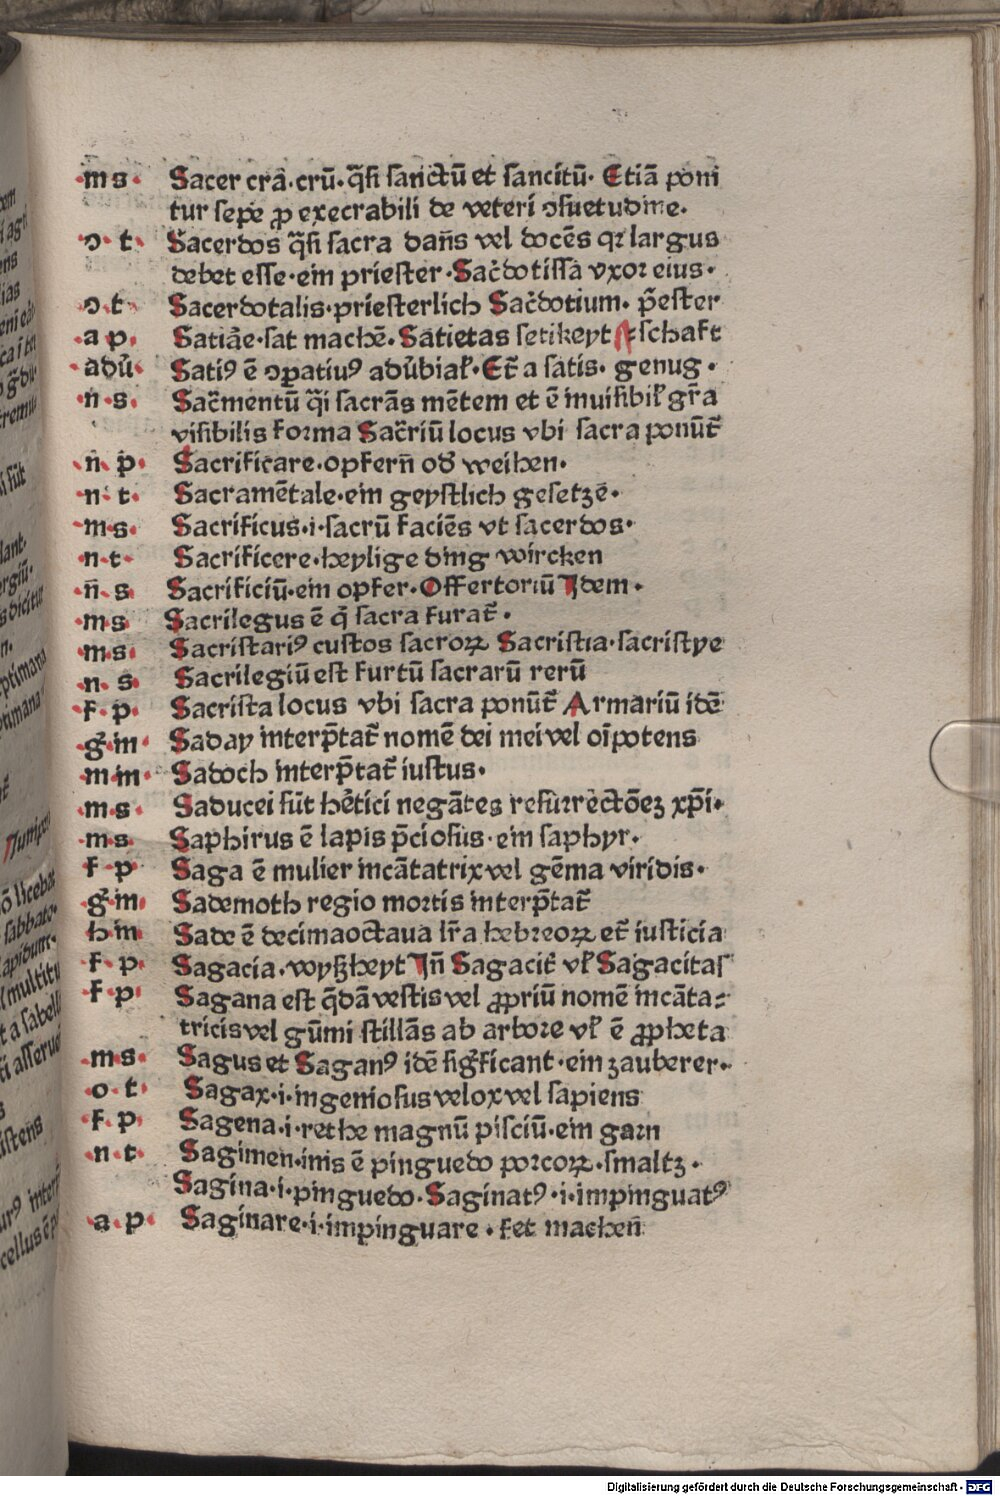 ·m s· Sacer crā·crū·q̄ſi ſanctū et ſancitū· Etiā poni
tur ſepe ꝓ execrabili de veteri ɔſuetudine·
·ɔ· t· Sacerdos q̄ſi ſacra dan̄s vel docēs qꝛ largus
debet eſſe·ein prieſter·Sac̄dotiſſa vxoꝛ eius·
·ɔ·t· Sacerdotalis·prieſterlich Sac̄dotium· p̄eſter
·a p· Satiāe·ſat machē·Satietas ſetikeyt ſchaft
·adū· Satiꝰ ē ɔꝑatiuꝰ adūbial̄·Et̄ a ſatis· genug·
·n s· Sac̄mentū q̄i ſacrās mētem et ē inuiſibil̄ gr̄a
viſibilis foꝛma Sac̄riū locus vbi ſacra ponūt̄
·n p· Sacrificare·opfern̄ od̄ weihen·
·n· t· Sacramētale·ein geyſtlich geſetzē·
·m s· Sacrificus·i·ſacrū faciēs vt ſacerdos·
·n·t· Sacrificere·heylige ding wircken
·n̄ s Sacrificiū·ein opfer·Offertoriū Idem·
·m s Sacrilegus ē q̄ ſacra furat̄·
·m s· Sacriſtariꝰ cuſtos ſacroꝝ Sacriſtia·ſacriſtye
·n· s Sacrilegiū eſt furtū ſacrarū rerū
·f· p· Sacriſta locus vbi ſacra ponūt̄ Armariū idē
·ḡ·m· Saday interp̄tat̄ nomē dei mei vel oīpotens
·m m· Sadoch interp̄tat̄ iuſtus·
·m s· Saducei ſūt hētici negātes reſurrectōeꝫ xp̄i·
·m s· Saphirus ē lapis p̄cioſus·ein ſaphyr·
f p· Saga ē mulier incātatrix vel gēma viridis·
·ḡ·m· Sademoth regio moꝛtis interp̄tat̄
·h m Sade ē decimaoctaua lr̄a hebꝛeoꝝ et̄ iuſticia
·f· p· Sagacia·wyſzheyt Jn̄ Sagacit̄ vl̄ Sagacitaſ
·f·p· Sagana eſt q̄dā veſtis vel ꝓpriū nomē incāta⸗
tricis vel gūmi ſtillās ab arboꝛe vl̄ ē ꝓpheta
·m s· Sagus et Saganꝰ idē ſigͥficant·ein zauberer·
·o· t· Sagax·i·ingenioſus velox vel ſapiens
·f· p· Sagena·i·rethe magnū piſciū·ein gaꝛn
·n· t· Sagimen·inis ē pinguedo poꝛcoꝝ·ſmaltz·
Sagina·i·pinguedo·Saginatꝰ·i·impinguatꝰ
·a· p· Saginare·i·impinguare·fet machen̄
Digitalisierung gefördert durch die Deutsche Forschungsgemeinschaft · DFG